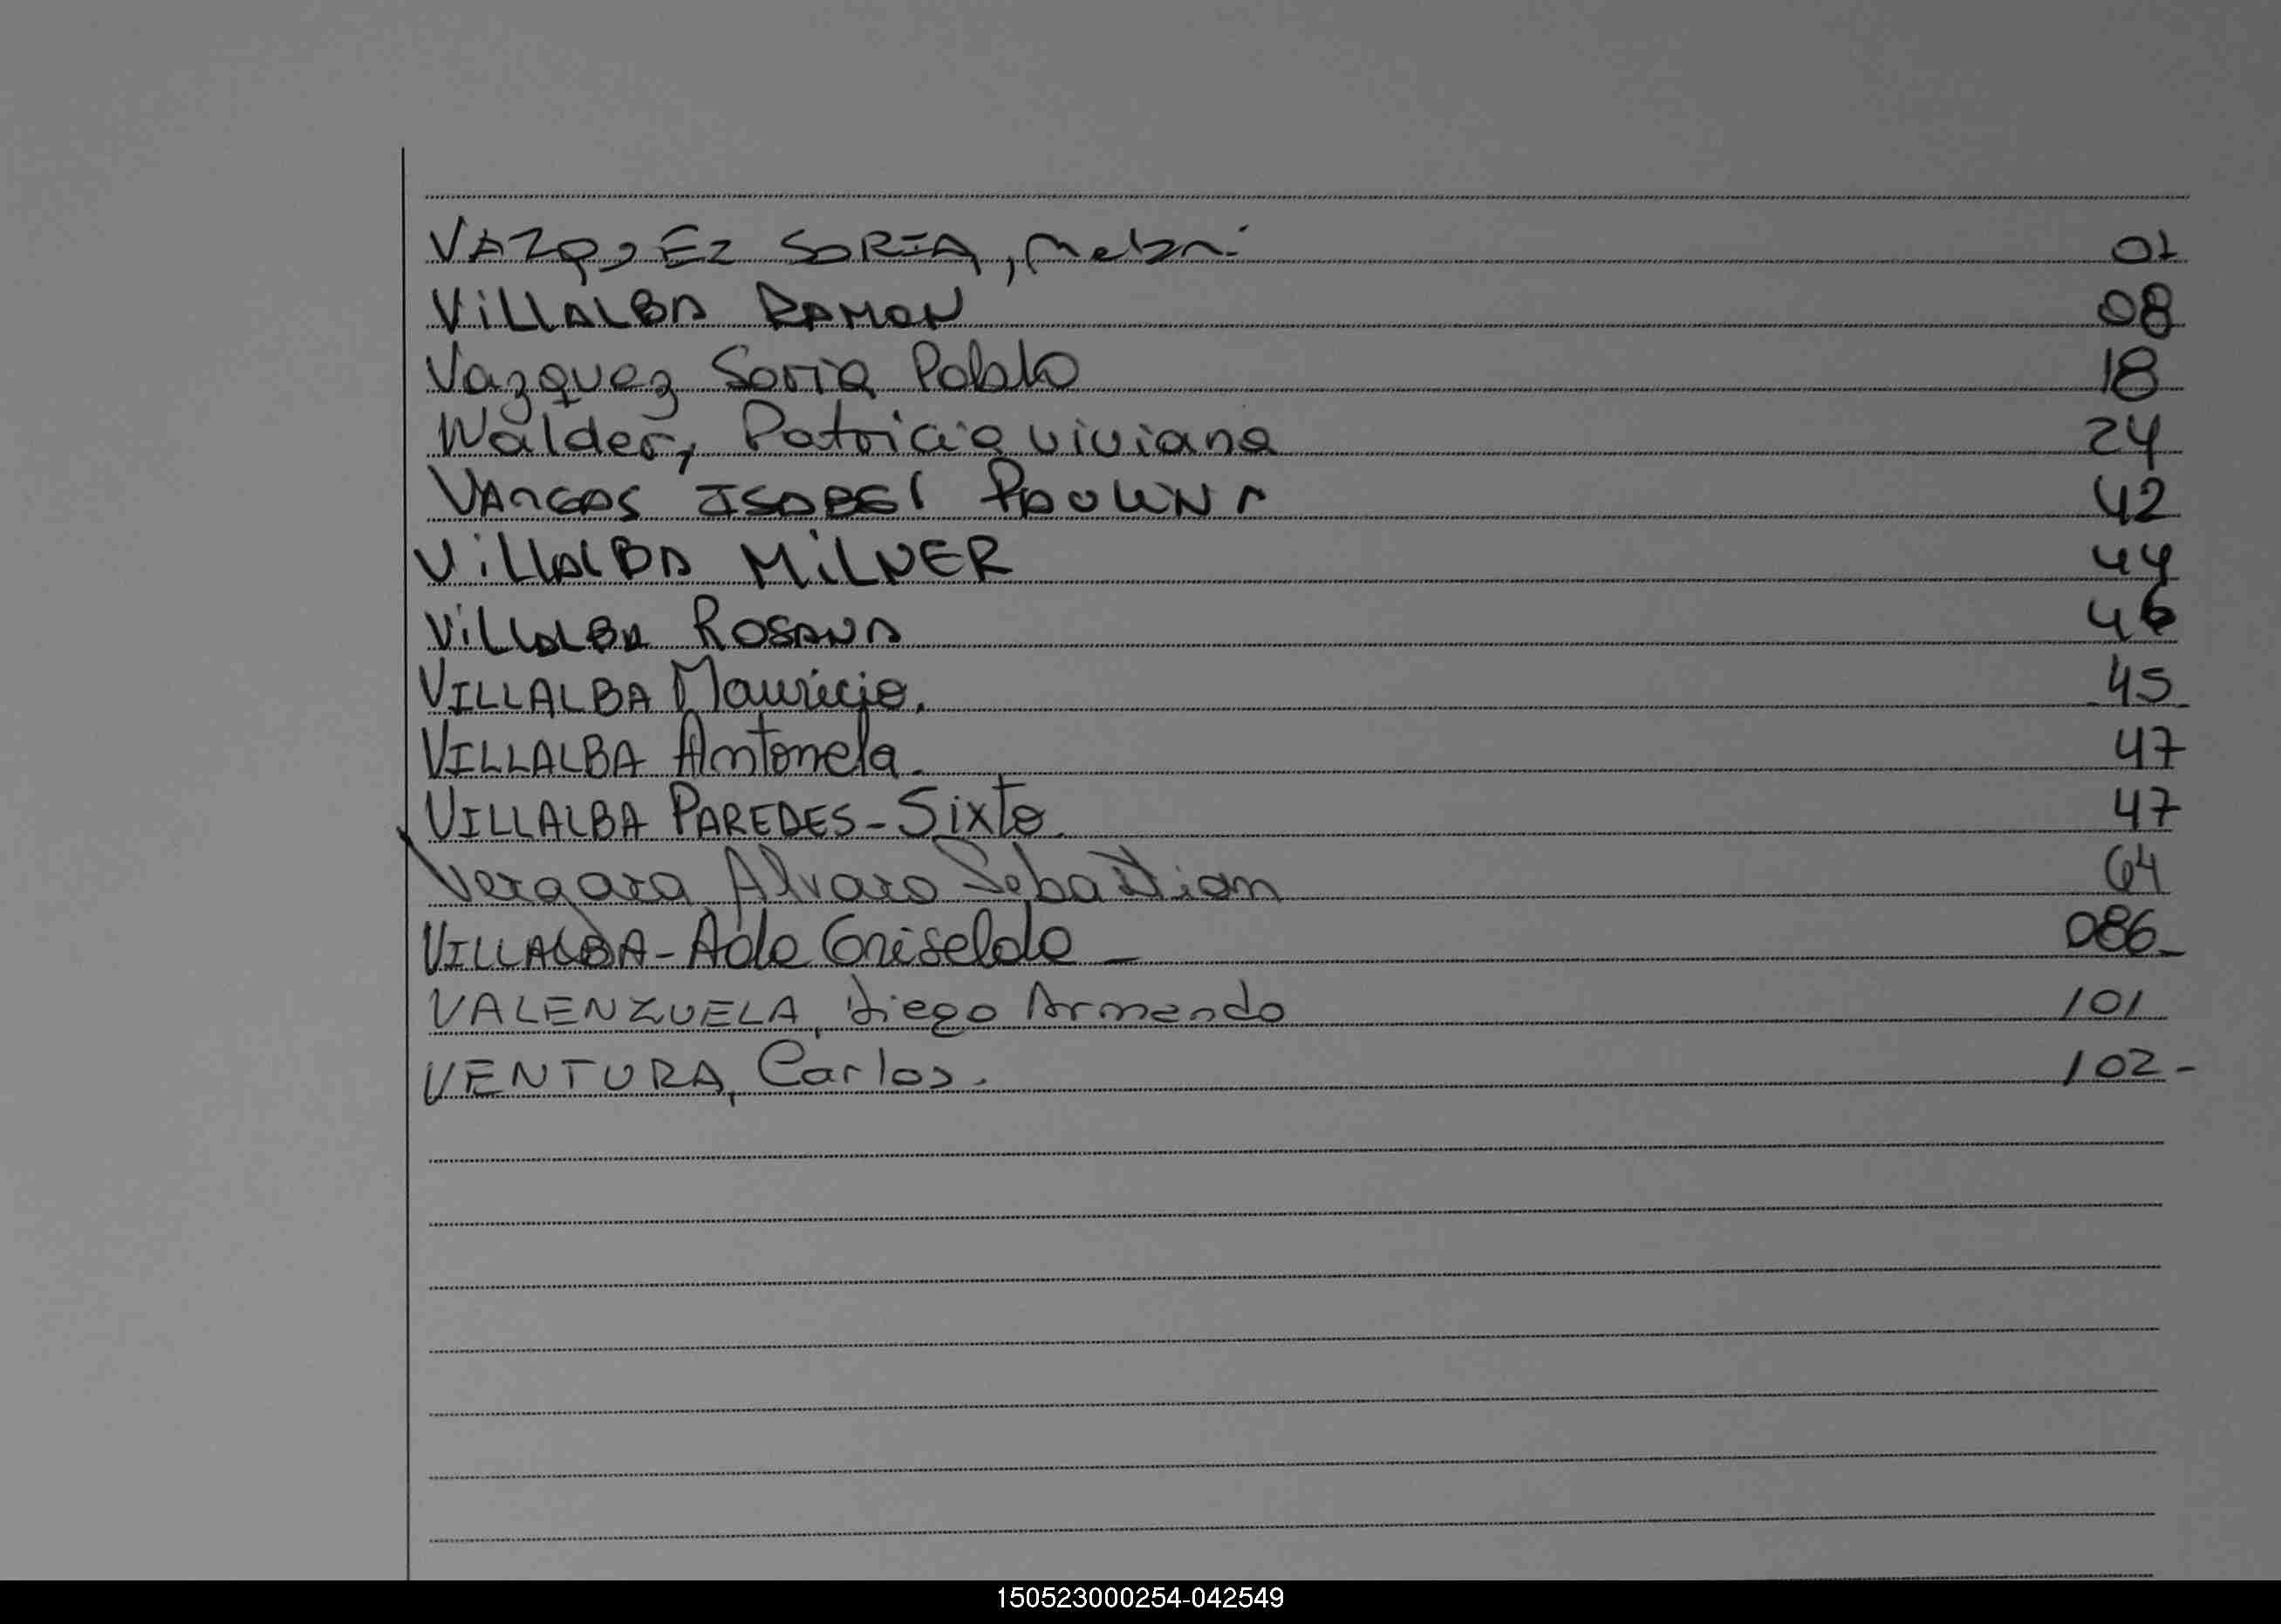 VAZQUEZ SORIA, 01
VILLALBA RAMON 08
Vazquez Soria Pablo 18
Walder, Patricia viviana 24
VARGAS ISABEL PAULINA 42
VILLALBA MILNER 44
VILLALBA ROSANA 46
VILLALBA Mauricio. 45
VILLALBA Antonela. 47
VILLALBA PAREDES - Sixto 47
Vergara Alvaro Sebastian 64
VILLALBA - Ada Griselda - 086-
VALENZUELA, Diego Armando 101
VENTURA, Carlos. 102-
150523000254-042549